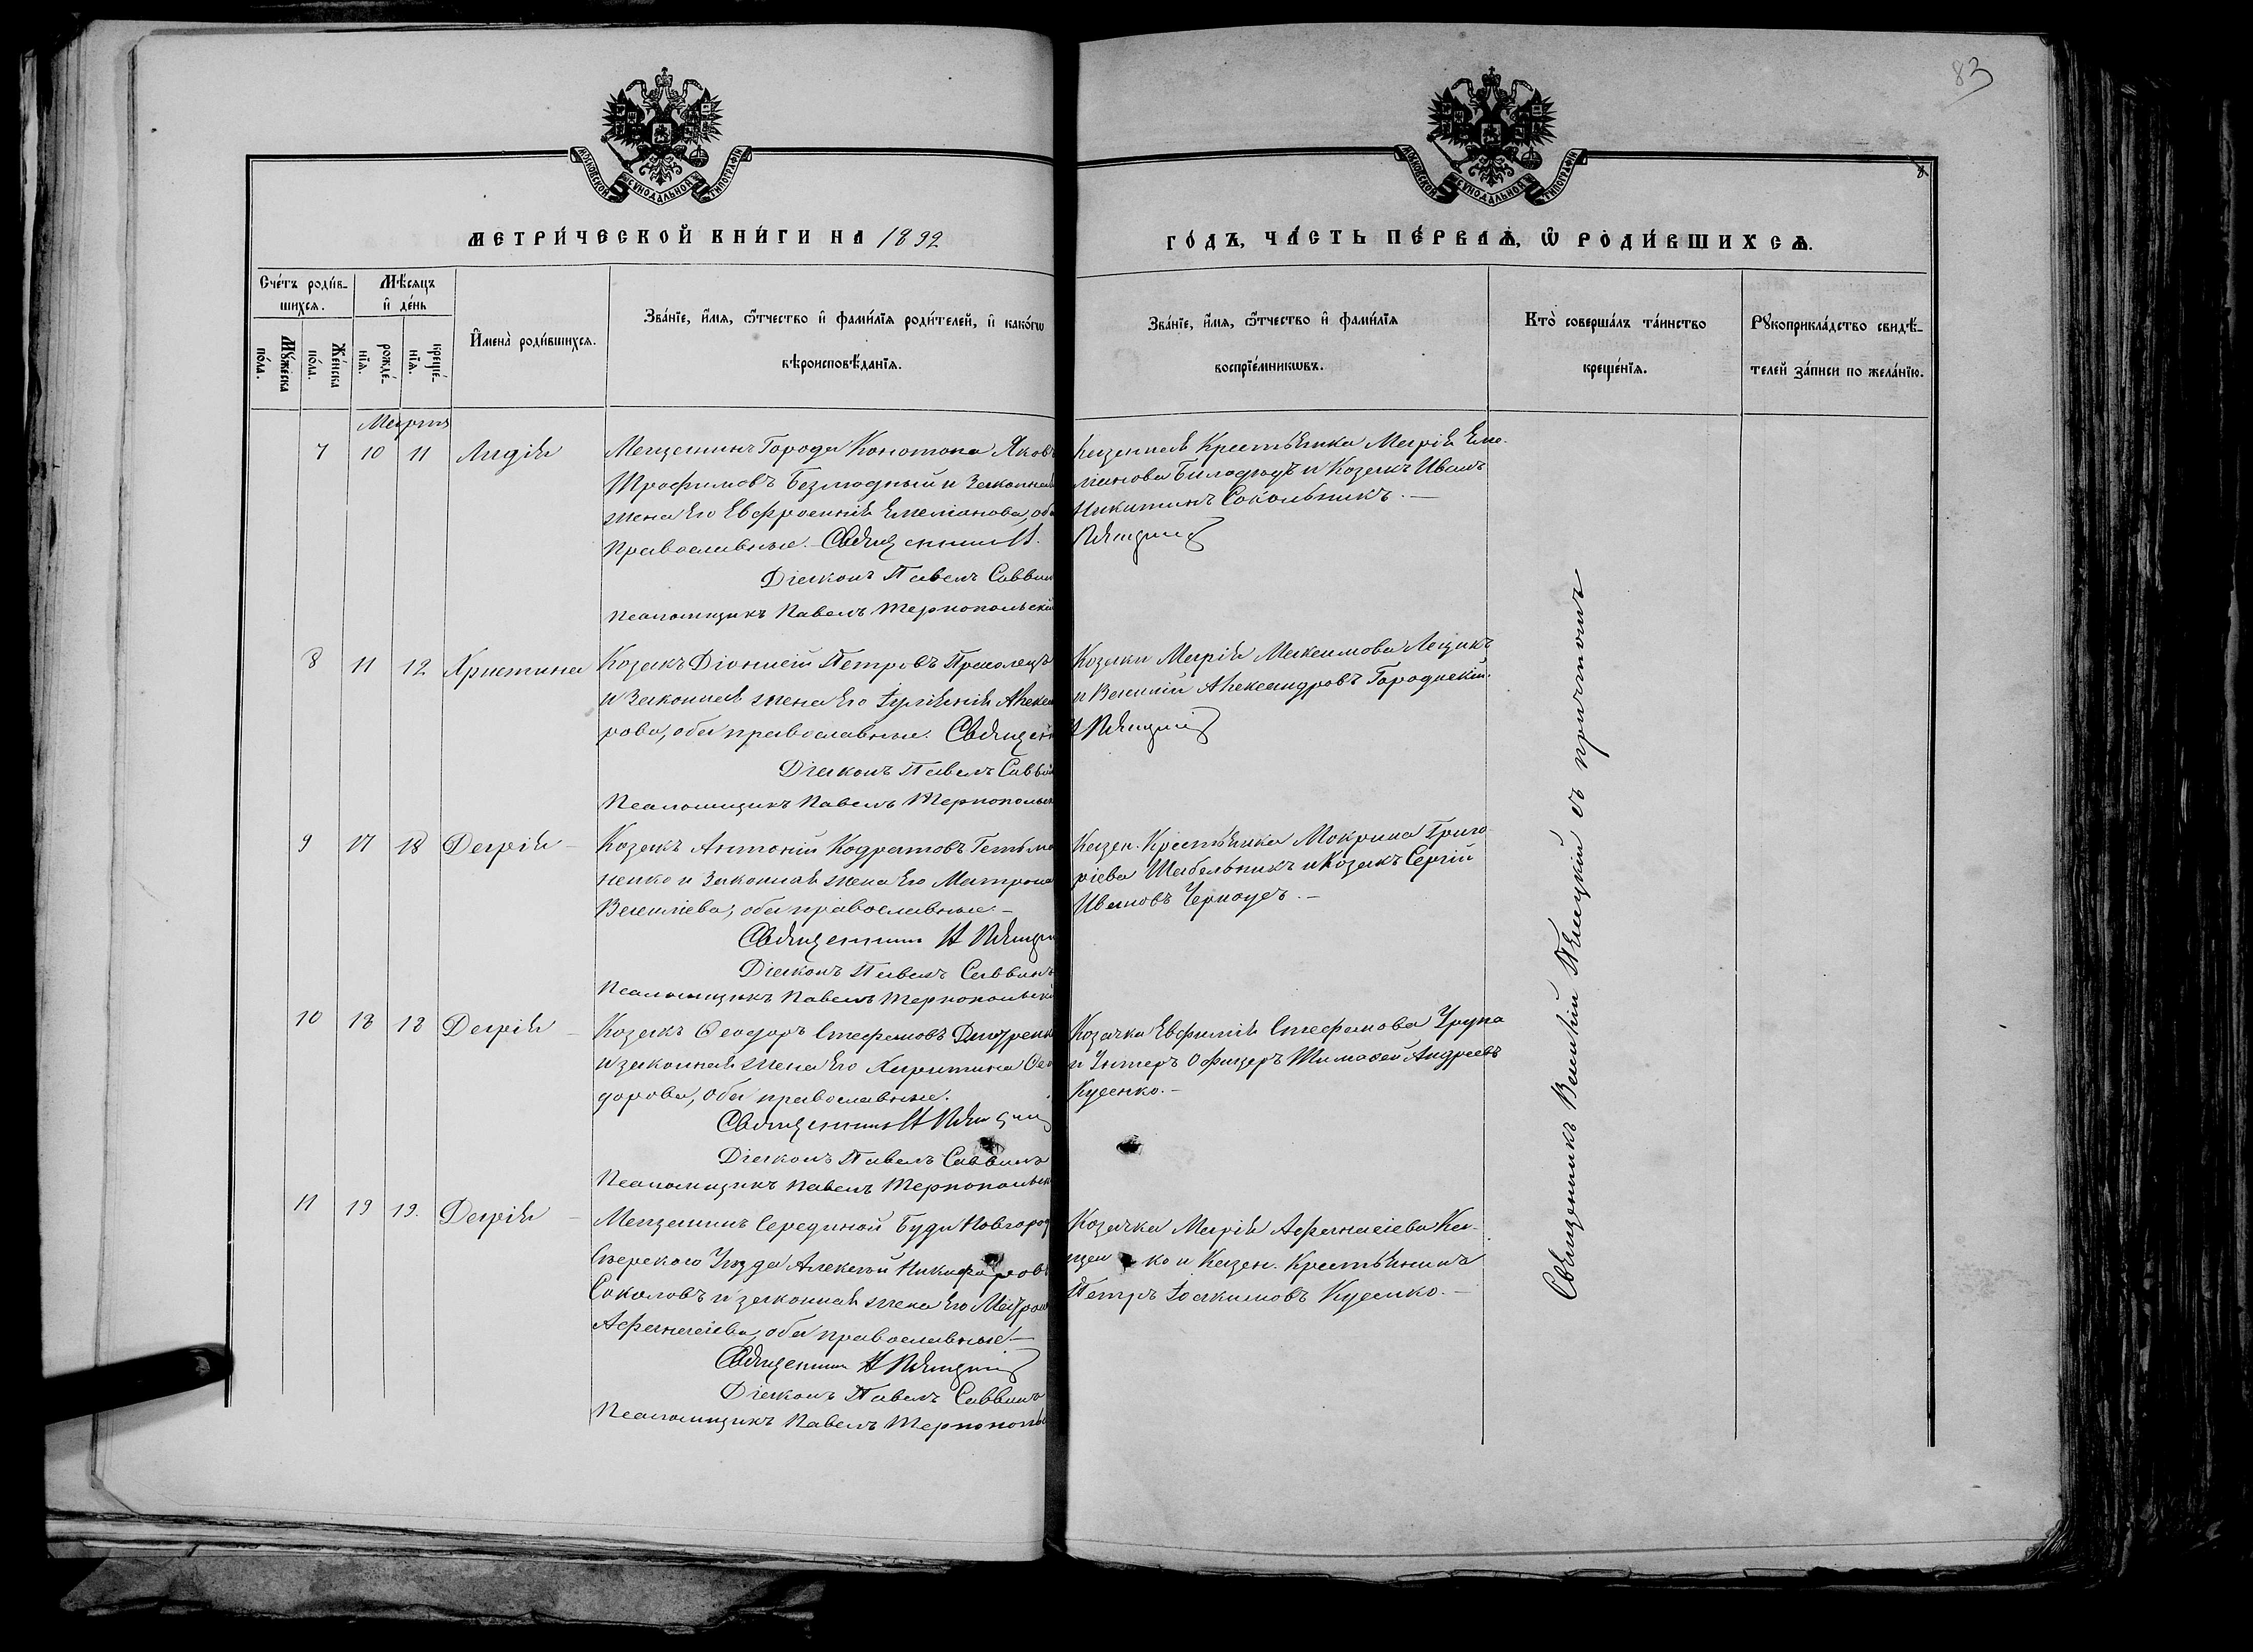 83
МОСКОВСКОЙ СѴНОДАЛЬНОЙ ТИПОГРАФІИ
МОСКОВСКОЙ СѴНОДАЛЬНОЙ ТИПОГРАФІИ
8
МЕТРИ́ЧЕСКОЙ КНИ́ГИ НА 1892
ГО́ДЪ, ЧА́СТЬ ПЕ́РВАѦ, Ѡ҆ РОДИ́ВШИХСѦ.
Сче́тъ роди́в-
шихсѧ.
Мꙋ́жеска по́ла.
Же́нска по́ла.
Мѣ́сѧцъ
и҆ де́нь
рожде́-нїѧ.
креще́-нїѧ.
И҆мена̀ роди́вшихсѧ.
Зва́нїе, и҆́мѧ, ѻ҆́тчество и҆ фами́лїѧ роди́телей, и҆ како́гѡ
вѣроисповѣ́данїѧ.
Зва́нїе, и҆́мѧ, ѻ҆́тчество и҆ фами́лїѧ
воспрїе́мникѡвъ.
Кто̀ соверша́лъ та́инство
креще́нїѧ.
Рꙋкоприкла́дство свидѣ́-
телей за́писи по жела́нїю.
Марта
7 10 11 Лидія
Мещанинъ Города Конотопа Яковъ
Трофимовъ Безлюдный и Законная
жена Его Евфросинія Емеліанова, оба
Православные. Священникъ
Діаконъ Павелъ Саввин
Псаломщикъ Павелъ Тернопольскій
Казенная Крестьянка Марія Еме-
ліанова Билодідъ и Козакъ Иванъ
Никитинъ Сокольникъ.
8 11 12 Христина
Козакъ Діонисій Петровъ
и Законная жена Его Іуліанія Алекса
рова, оба православные. Священ
Діаконъ Павелъ Савви
Псаломщикъ Павелъ Тернопольск
Козаки Марія Максимова Лещикъ
и Василій Александровъ Городнскій.
9 17 18 Дарія
Козакъ Антоній Кодратовъ Гетьма
ненко и Законная жена Его Матрона
Василіева, оба православные.
Священникъ
Діаконъ Павелъ Саввинъ
Псаломщикъ Павелъ Тернопольскі
Казен. Крестьянка Мокрина Григо
ріева Шабельникъ и Козакъ Сергій
Ивановъ Черноусъ.
10 18 18 Дарія
Козакъ Ѳеодоръ Стефановъ
и законная жена Его Харитина Ѳео
дорова, оба православные.
Священникъ
Діаконъ Павелъ Саввинъ
Псаломщикъ Павелъ Тернопольск
Козачка Евфимія Стефанова
и Унтеръ Офицеръ Тимофей Андреевъ
Кусенко.
11 19 19. Дарія
Мещанинъ Середіной Буди Новгород
Сѣверского Уѣзда Алексѣй Никифоровъ
Соколовъ и законная жена Его
Афанасіева, оба православные.
Священникъ
Діаконъ Павелъ Саввинъ
Псаломщикъ Павелъ Тернополь
Козачка Марія Афанасіева
ко и Казен. Крестьянинъ
Петръ Іоакимовъ
Священникъ Василій съ причтомъ